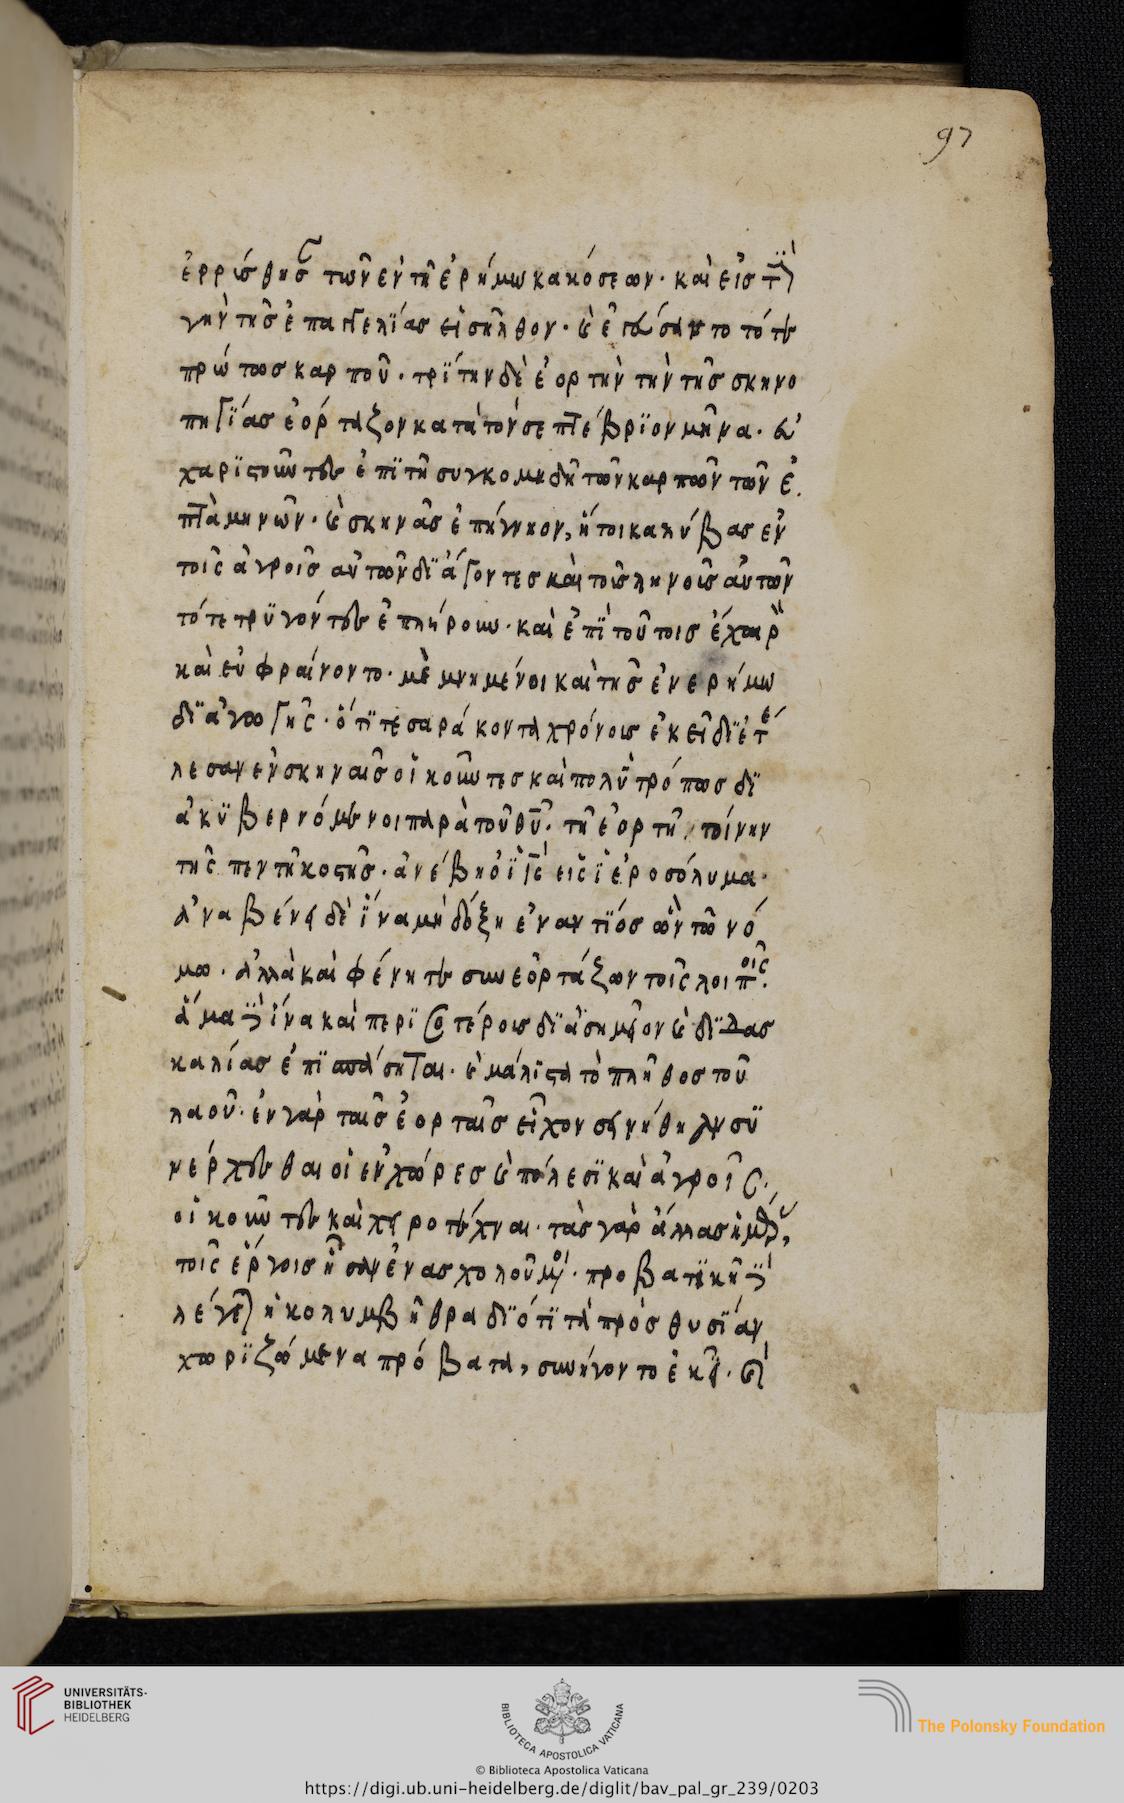 97
ἐρρύσθησ τῶν ἐν τῆ ἐρήμω κακόσεων· καὶ εἰσ τὴν
γῆν τῆσ ἐπαγγελίας εἰσῆλθον· καὶ ἐγεύσαντο τότε
πρώτοσ καρποῦ· τρίτην δὲ ἐορτὴν τὴν τῆσ σκηνο
πηγίασ ἐόρταζον κατὰ τὸν σεπτέβριον μῆνα· εὐ
χαριστοῦντες ἐπὶ τῆ συγκομηδῆ τῶν καρπῶν τῶν ἐ
πταμηνῶν· καὶ σκηνὰσ ἐπήγνηον, ἤτοι καλύβας ἐν
τοῖς ἀγροῖσ αὐτῶν διάγοντεσ καὶ τοῖσ ληνοῖσ αὐτῶν
τότε τρϋγόντες ἐπλήρουν· καὶ ἐπὶ τούτοισ ἔχαιρ
καὶ εὐφραίνοντο· μεμνημένοι καὶ τῆσ ἐν ερήμω
διαγωγῆς· ὅτι τεσαράκοντα χρόνοισ ἐκεῖ διετέ
λεσαν ἐν σκηναῖσ οἰκοῦντεσ καὶ πολϋτρόπωσ δϊ
ἀκϋβερνόμενοι παρὰ τοῦ θυ̅· τῆ ἐορτῆ τοίνην
τῆς πεντηκοστῆσ· ἀνέβη ὁ ις̅ εἰς ϊἐροσόλυμα·
ἀναβένει δὲ ἵνα μὴ δόξη ἐναντίος ὢν τῶ νό
μω· ἀλλὰ καὶ φένητε συνεορτάζων τοῖς λοιποῖς·
ἅμα δὲ ἵνα καὶ περισσοτέροισ διὰ σημείον καὶ διδας
καλίασ ἐπϊσπάσηται· καὶ μάλιστα τὸ πλῆθοσ τοῦ
λαοῦ· ἐν γὰρ ταῖσ ἐορταῖσ εἶχον συνήθηαν σϋ
νέρχεσθαι οἱ ἐν χώρεσ καὶ πόλεσϊ καὶ ἀγροῖς·
οἰκοῦντες καὶ χειροτέχναι· τὰσ γὰρ ἄλλασ ἡμέρας,
τοῖς ἔργοισ ἦσαν ἐνασχολούμενοι· προβατϊκὴ δὲ
λέγεται ἡ κολυμβήθρα διότι τὰ πρόσ θυσίαν
χωρϊζώμενα πρόβατα, συνήγοντο ἐκεῖ·
UNIVERSITÄTS-
BIBLIOTHEK
HEIDELBERG
BIBLIOTECA APOSTOLICA VATICANA
The Polonsky Foundation
© Biblioteca Apostolica Vaticana
https://digi.ub.uni-heidelberg.de/diglit/bav_pal_gr_239/0203